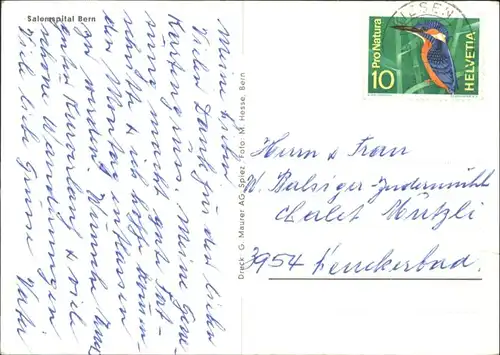 Salemspital Bern
Meine Lieben
Viele Dank für den lieben
Kartengruss. Meine Gene-
sung macht gute Fort-
schritte & ich hoffe kom-
den Montag entlassen
zu werden. Wünsche Euch
guten Kurerfolg & viele
schöne Wanderungen
Viele liebe Grüsse Vati
Druck G. Maurer AG Spiez Foto: M. Hesse, Bern
Pro Natura
10
HELVETIA
Herrn & Frau
W. Balsiger-Zudermühle
Chalet Mützli
3954 Leuckerbad.